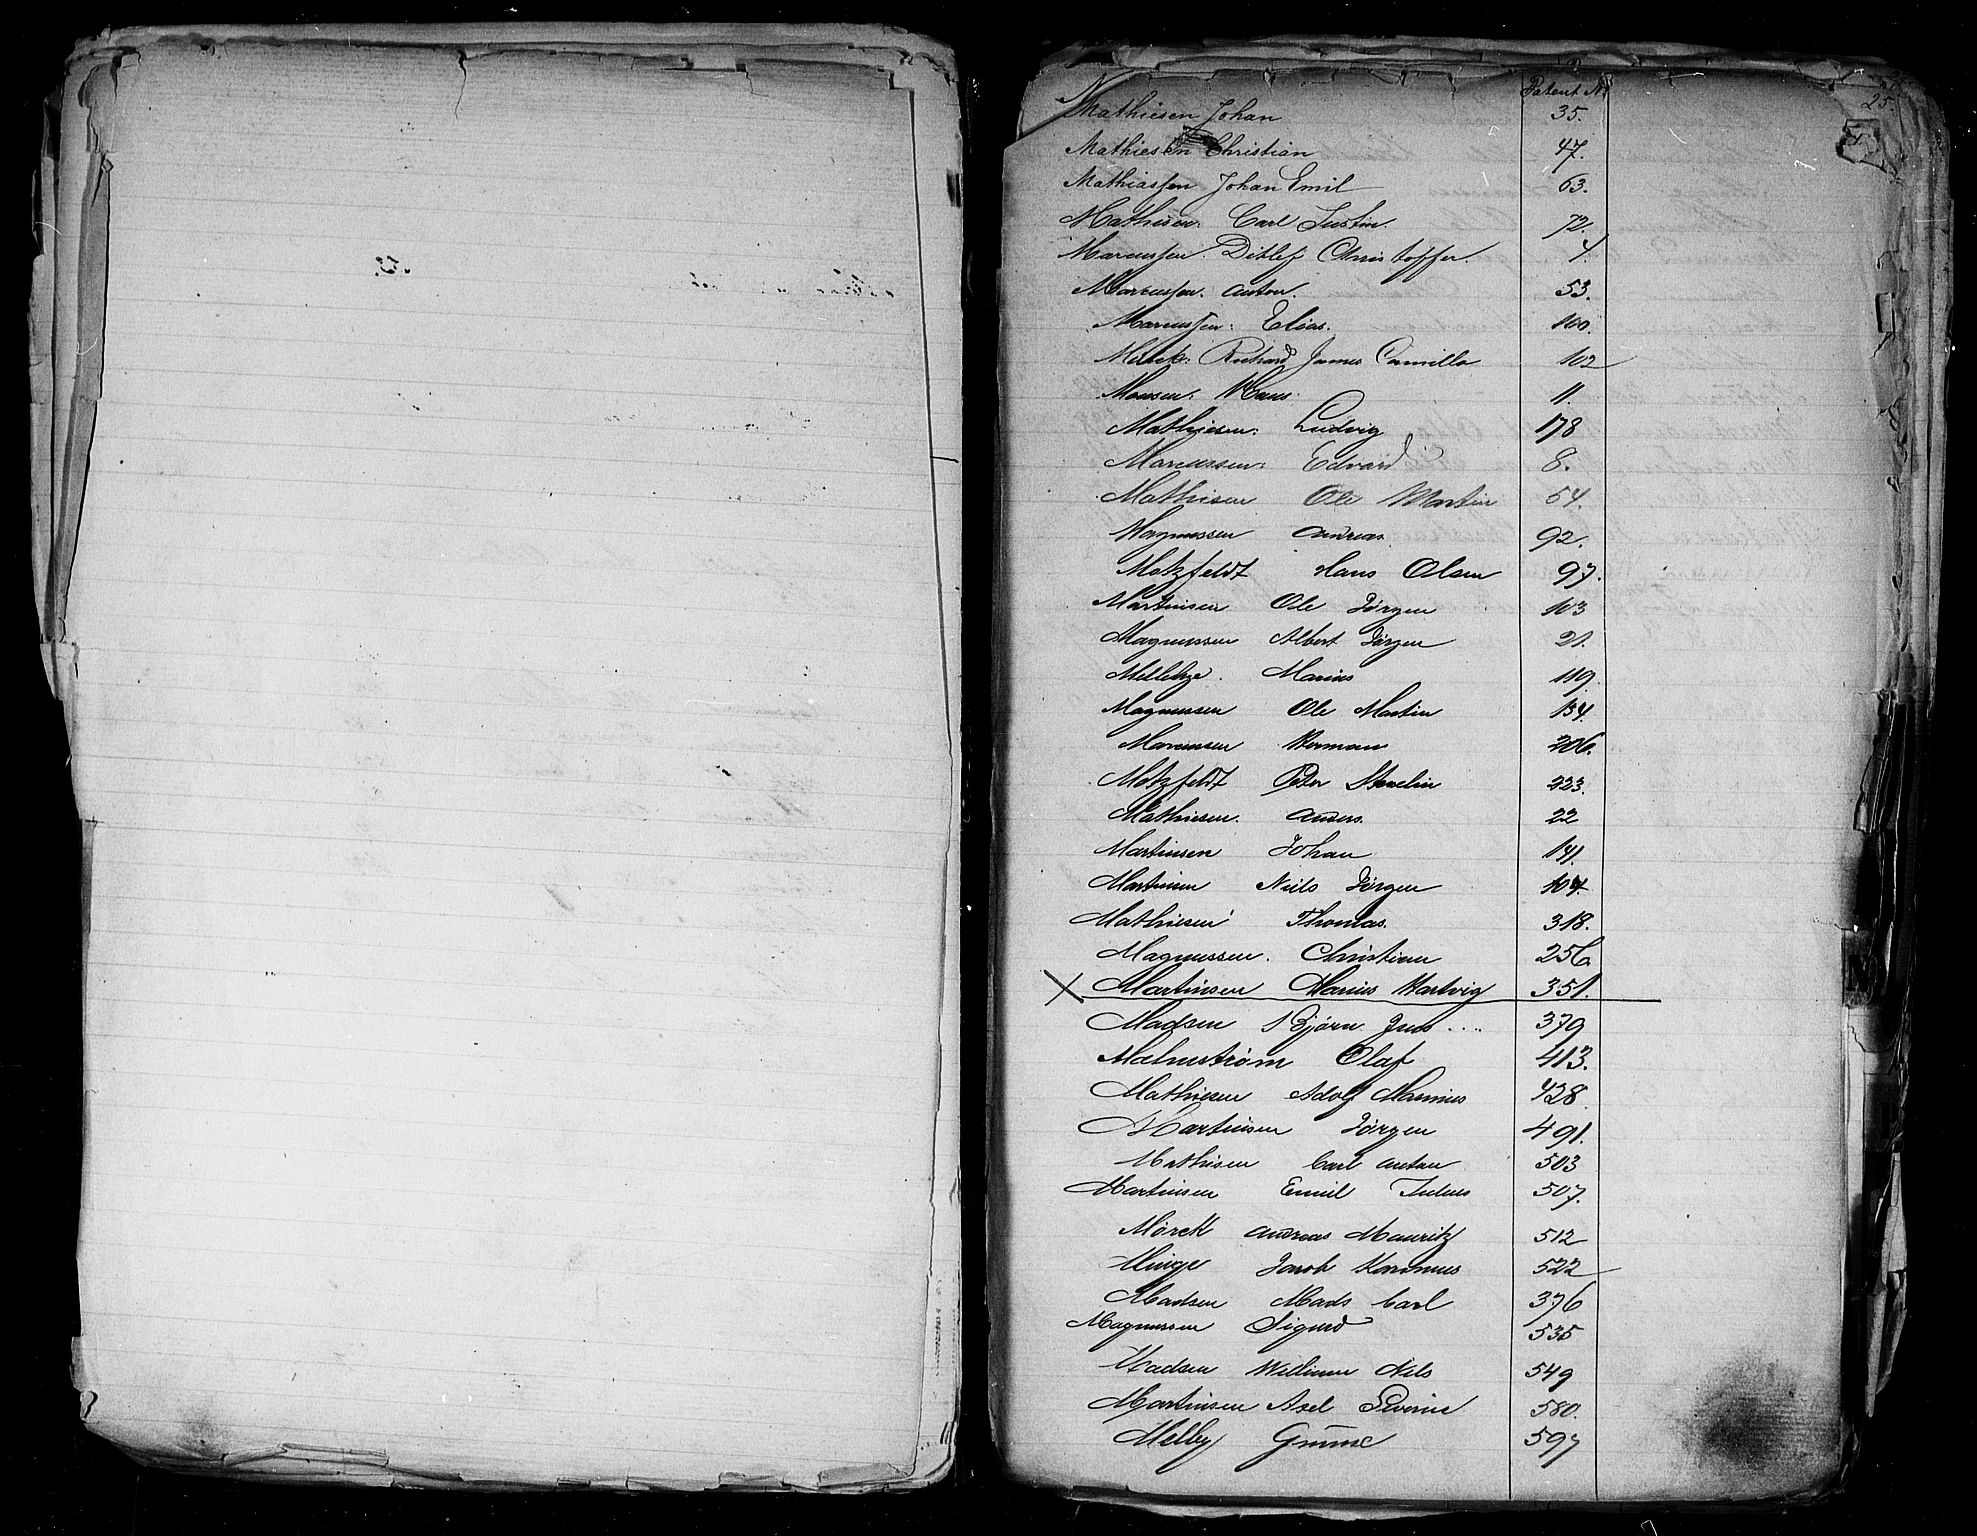 Patent No
25
Mathiesen Johan 35.
Mathiesen Christian 47.
Mathiassen Johan Emil 63.
Mathisen. Carl Justin. 72.
Marcussen. Ditlef Christoffer. 1.
Marcussen. Anton. 53.
Marcussen. Elias. 100.
Richard James Camillo 102
Monsen. Hans. 11.
Mathiesen. Ludvig 178
Marcussen. Edvard 8.
Mathisen Ole Martin 54.
Magnussen Andreas. 92.
Motzfeldt Hans Olsen 97.
Martinsen Ole Jörgen 103
Magnussen Albert Jörgen 21.
Marius 119.
Magnussen Ole Martin 134.
Marcussen Herman 206.
Motzfeldt Peter 223.
Mathiesen. Anders. 22
Martinsen Johan 141.
Martinsen Niels Jörgen 104.
Mathiesen Thomas. 318.
Magnussen. Christian 256
X Martinsen Marius Hartvig 351.
Madsen Bjørn Jens 379
Malmstrøm Olaf 413.
Mathiesen Adolf Marinius 428.
Martinsen Jörgen 491.
Mathisen Carl Anton 503
Martinsen Emil Julius 507.
Mørck Andreas Mauritz 512
Minge Jacob Rasmus 522
Madsen Mads Carl 376
Magnussen Sigurd 535
Madsen William Nils 549
Martinsen Axel Severin 580.
Melby 597